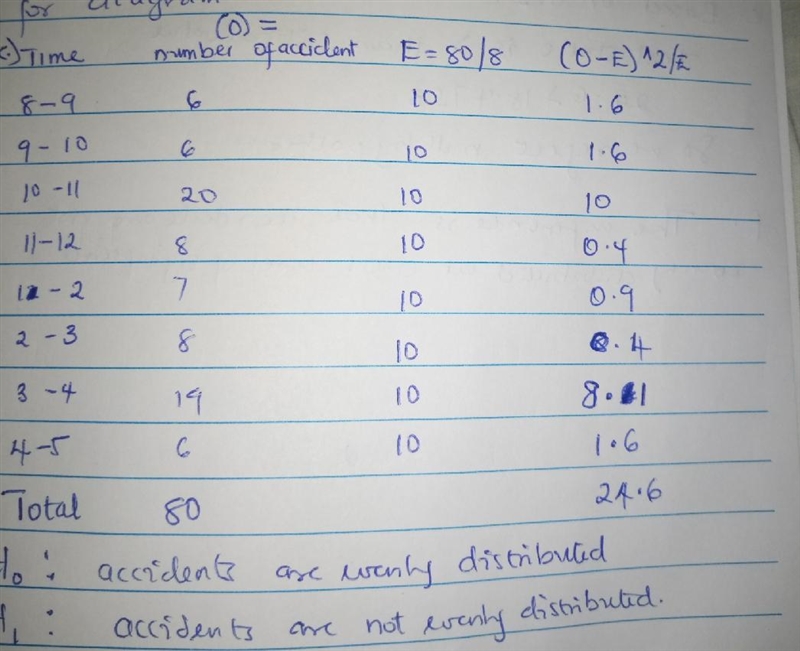 for diagram
(O) =
c.) Time number of accident E = 80/8 (O-E)^2/E
8-9 6 10 1.6
9-10 6 10 1.6
10-11 20 10 10
11-12 8 10 0.4
12-2 7 10 0.9
2-3 8 10 0.4
3-4 19 10 8.1
4-5 6 10 1.6
Total 80 24.6
H₀ : accidents are evenly distributed
H₁ : accidents are not evenly distributed.